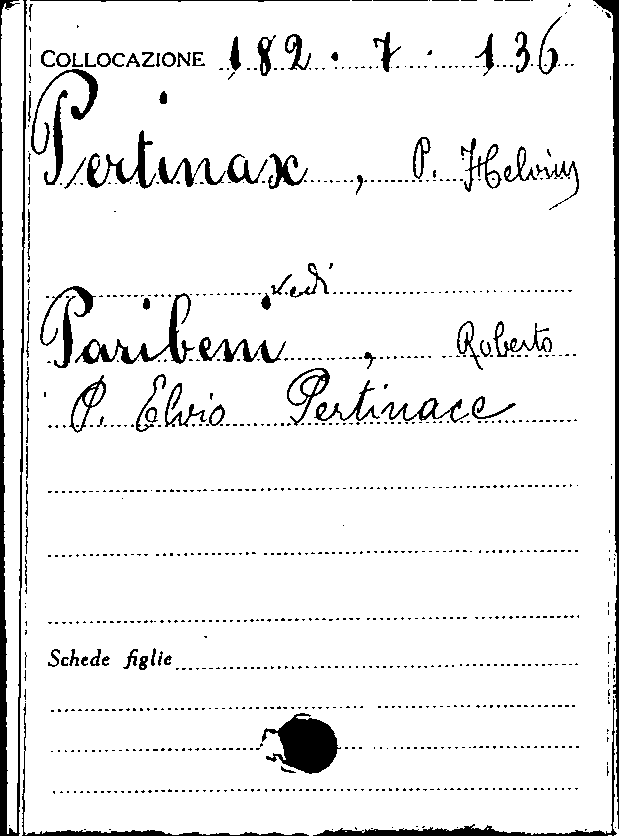 COLLOCAZIONE 182 · 7 · 136
Pertinax, P. Helvius
vedi
Paribeni, Roberto
P. Elvio Pertinace
Schede figlie